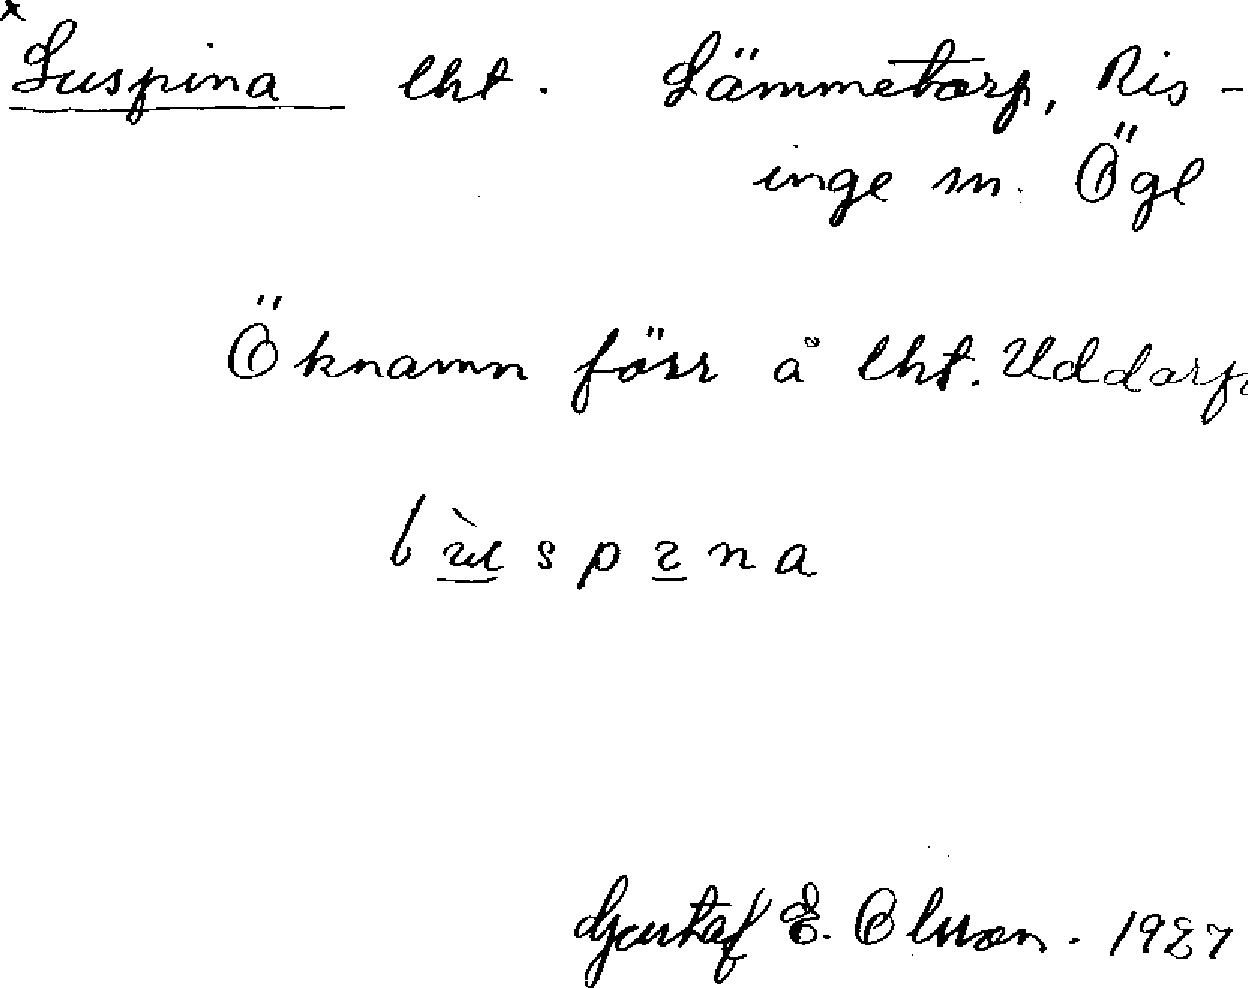 x Luspina lht. Lämmetorp, Ris-
inge sn. Ögl
Öknamn förr å lht. Uddarp
lùspina
Gustaf E. Olsson. 1927